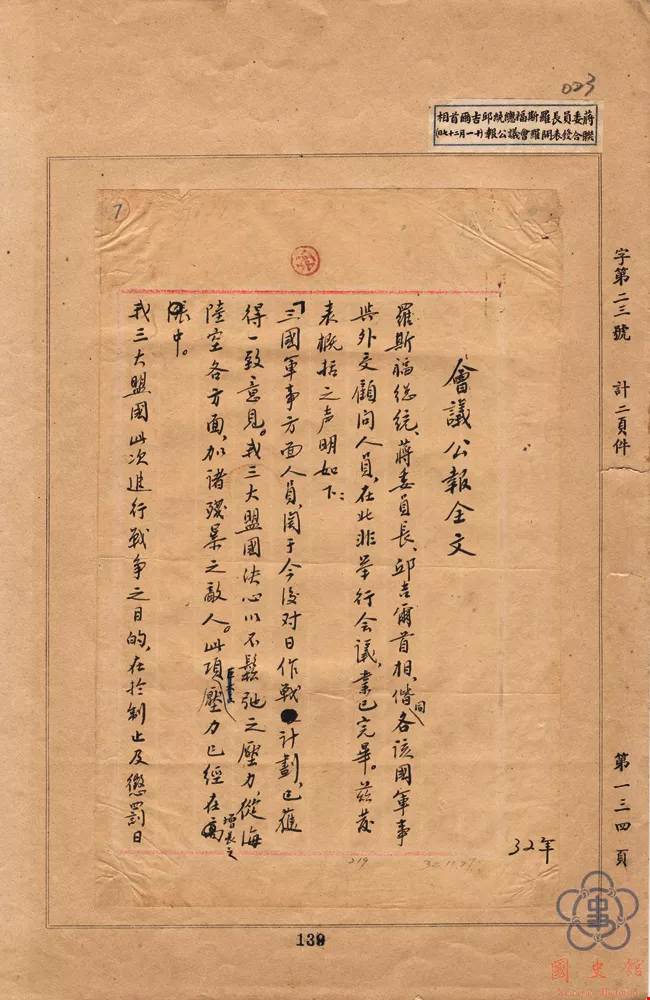 023
蔣委員長羅斯福總統邱吉爾首相
聯合發表開羅會議公報(十一月二十七日)
字第二三號 計二頁件
第一三四頁
7
會議公報全文
羅斯福總統、蔣委員長、邱吉爾首相、偕同各該國軍事
與外交顧問人員、在北非舉行会議、業已完畢。茲發
表概括之声明如下：
「三國軍事方面人員、関于今後对日作戰計劃、已獲
得一致意見。我三大盟國决心以不鬆弛之壓力、從海
陸空各方面、加諸殘暴之敵人。此項壓力已經在增長之
中。
我三大盟國此次進行戰争之目的、在於制止及懲罰日
32年
219
32.11.27
139
國史館